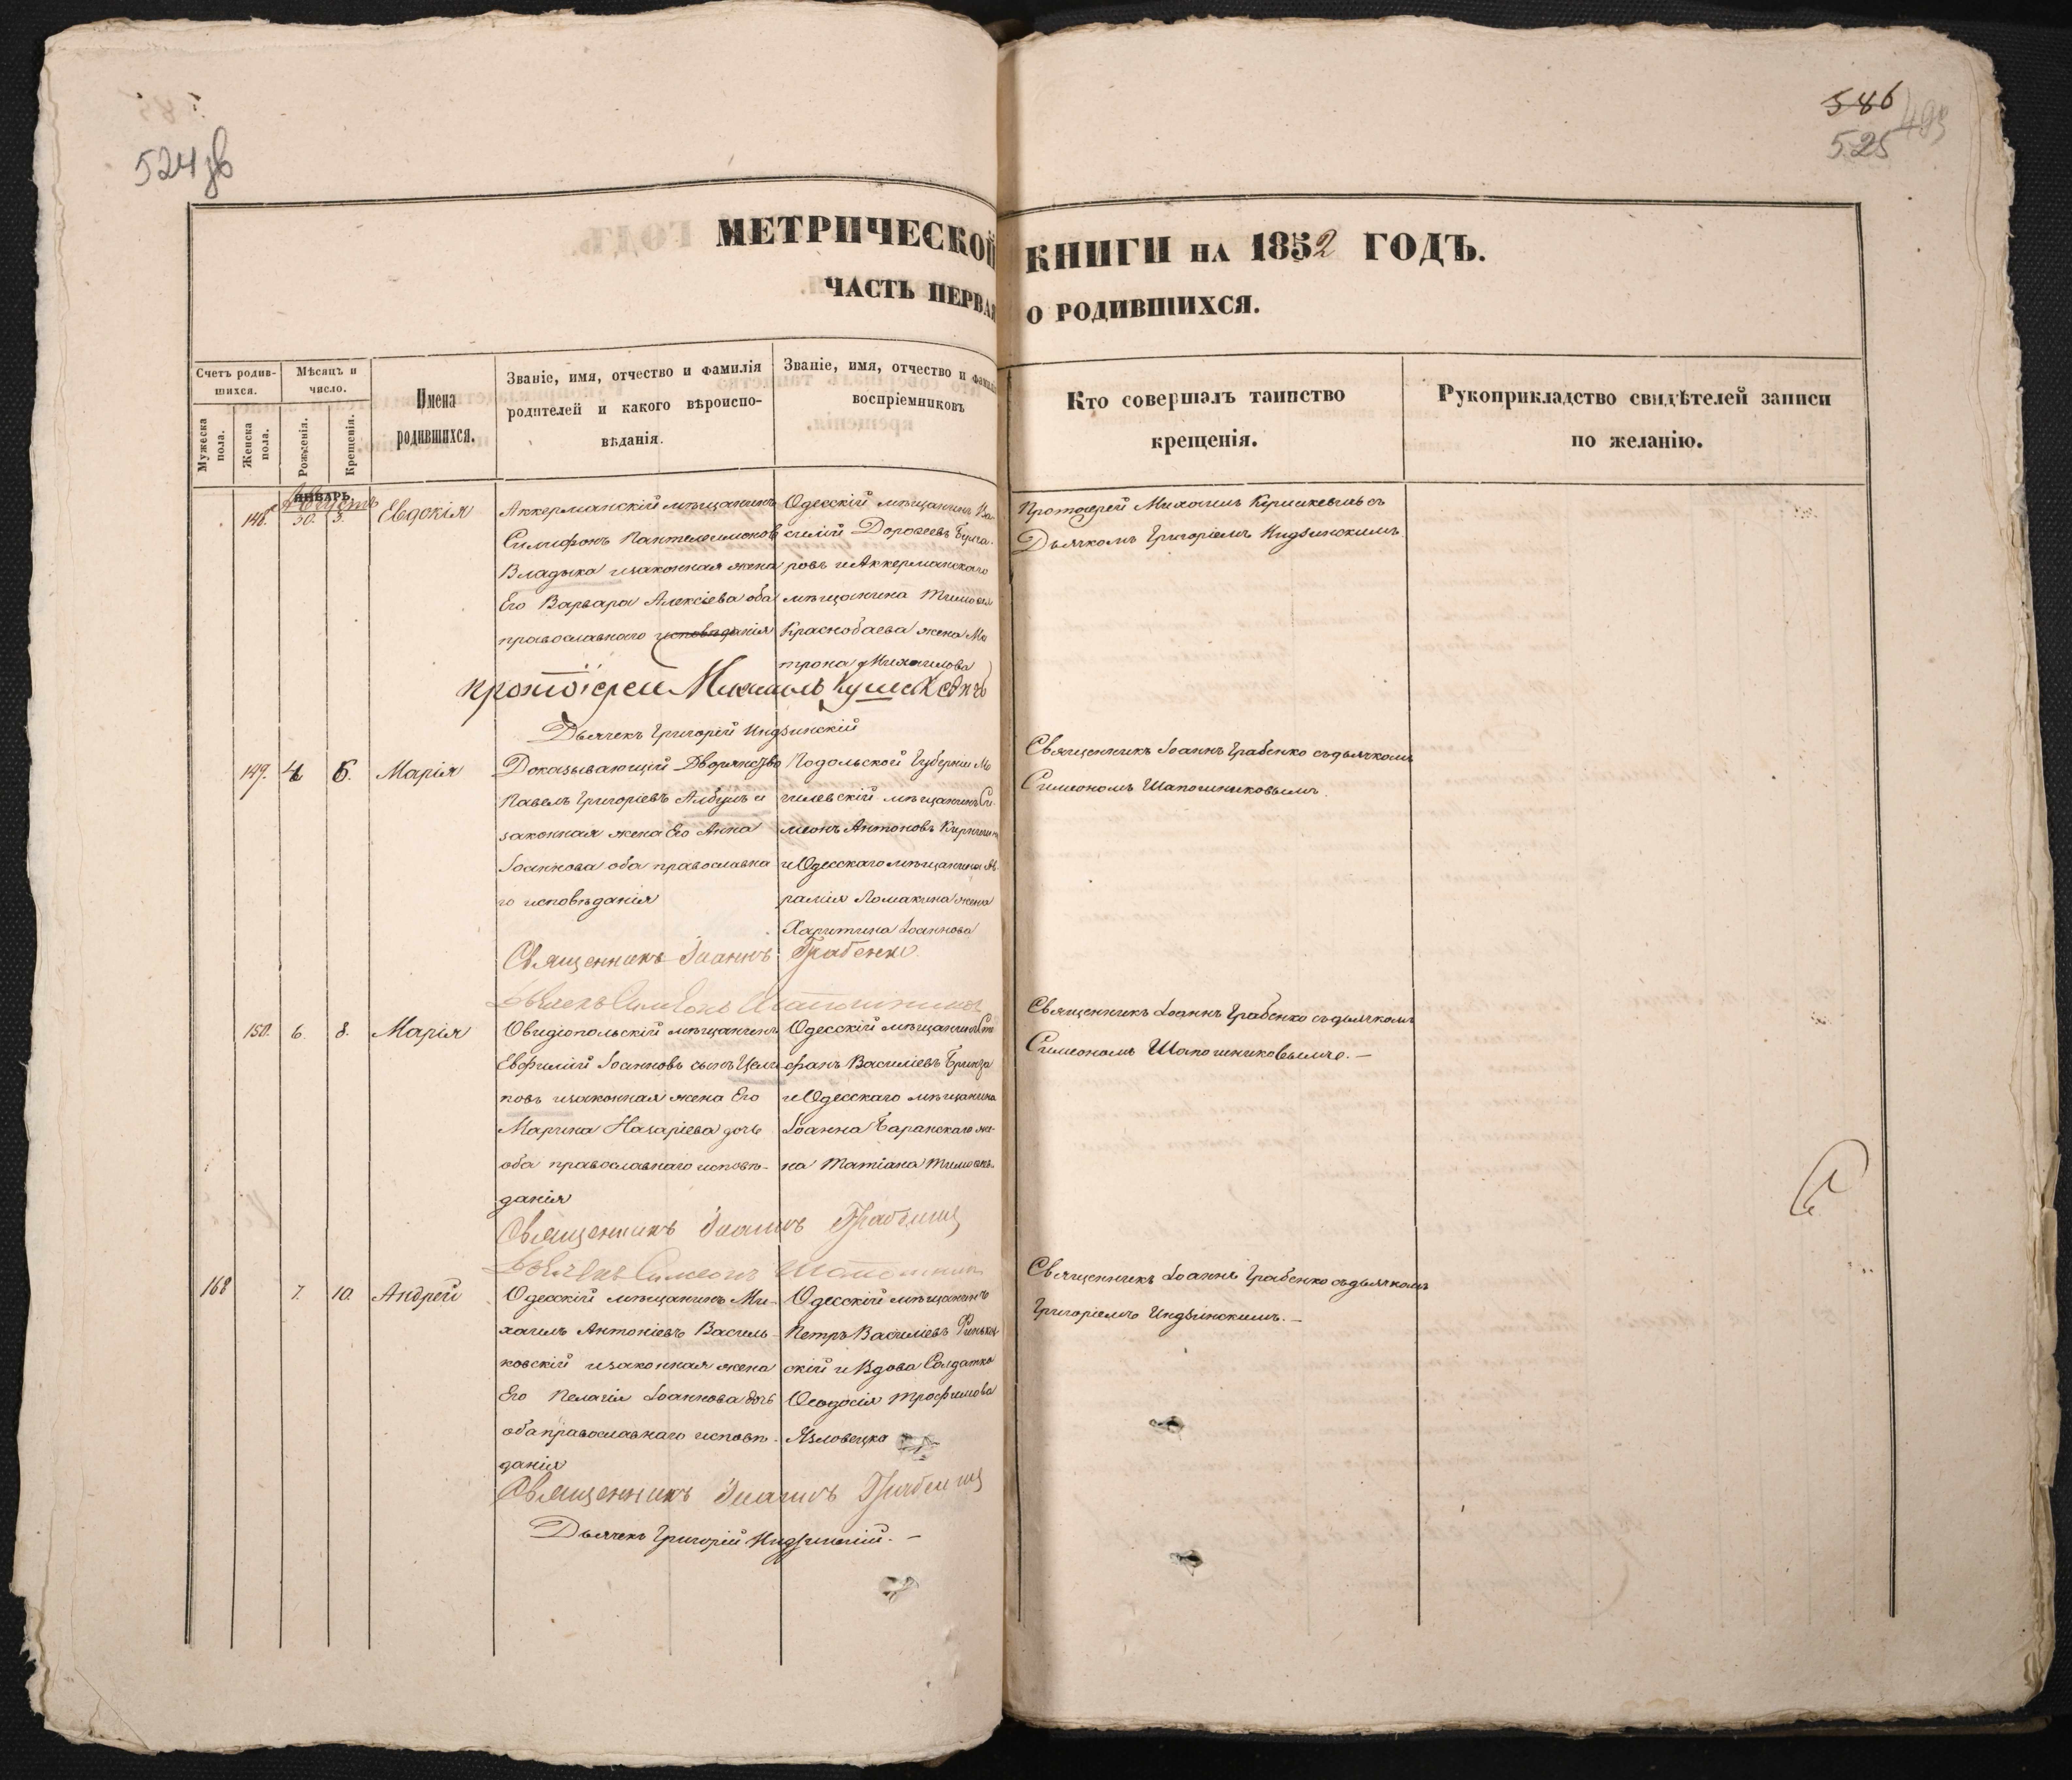 524 зв
586
493
525
МЕТРИЧЕСКОЙ КНИГИ НА 1852 ГОДЪ.
ЧАСТЬ ПЕРВАЯ О РОДИВШИХСЯ.
Счетъ родив-
шихся.
Мужеска пола.
Женска пола.
Мѣсяцъ и
число.
Рожденія.
Крещенія.
Имена
родившихся.
Званіе, имя, отчество и фамилія
родителей и какого вѣроиспо-
вѣданія.
Званіе, имя, отчество и фамилія
воспріемниковъ
Кто совершалъ таинство
крещенія.
Рукоприкладство свидѣтелей записи
по желанію.
ЯНВАРЬ.
Августъ
148. 30. 3. Евдокія
Аккерманскій мѣщанинъ
Силифонъ Пантелеимоновъ
Владыка изаконная жена
Его Варвара Алексіева оба
православнаго исповѣданія
Одесскій мѣщанинъ Ва-
силій Дороѳеевъ
ровъ иАккерманскаго
мѣщанина Тимоѳея
Краснобаева жена Ма
трона Михаилова
Протоіерей Михаилъ съ
Дьячкомъ Григоріемъ Индзинскимъ
протоіереи Михаилъ
Дьячекъ Григорій Индзинскій
149. 4 6. Марія
Доказывающій Дворянство
Павелъ Григоріевъ Албулъ и
законная жена Его Анна
Іоаннова оба православна
го исповѣданія
Подольской Губерніи Мо
гилевскій мѣщанинъ Си-
меонъ Антоновъ
иОдесскаго мѣщанина Ав-
рамія Ломакина жена
Харитина Іоаннова
Священникъ Іоаннъ Грабенко съдьячкомъ
Симеономъ Шапошниковымъ.
Священникъ Іоаннъ Грабенко
Дьячекъ Симеонъ Шапошниковъ
150. 6. 8. Марія
Овидіопольскій мѣщанинъ
Евфимій Іоанновъ сынъ Цели
ковъ изаконная жена Его
Марина Назаріева дочь
оба православнаго исповѣ-
данія
Одесскій мѣщанинъ Сте
фанъ Василіевъ Бринза
иОдесскаго мѣщанина
Іоанна Баранскаго же-
на Татіана
Священникъ Іоаннъ Грабенко съдьячкомъ
Симеономъ Шапошниковымъ. —
Священникъ Іоаннъ Грабенко
Дьячекъ Симеонъ Шапошниковъ
168 7. 10. Андрей
Одесскій мѣщанинъ Ми-
хаилъ Антоніевъ Василь-
ковскій изаконная жена
Его Пелагія Іоаннова дочь
оба православнаго исповѣ-
данія
Одесскій мѣщанинъ
Петръ Василіевъ
скій иВдова Солдатка
Ѳеодосія Трофимова
Язловецка
Священникъ Іоаннъ Грабенко съдьячкомъ
Григоріемъ Индзинскимъ. —
Священникъ Іоаннъ Грабенко
Дьячекъ Григорій Индзинскій. —